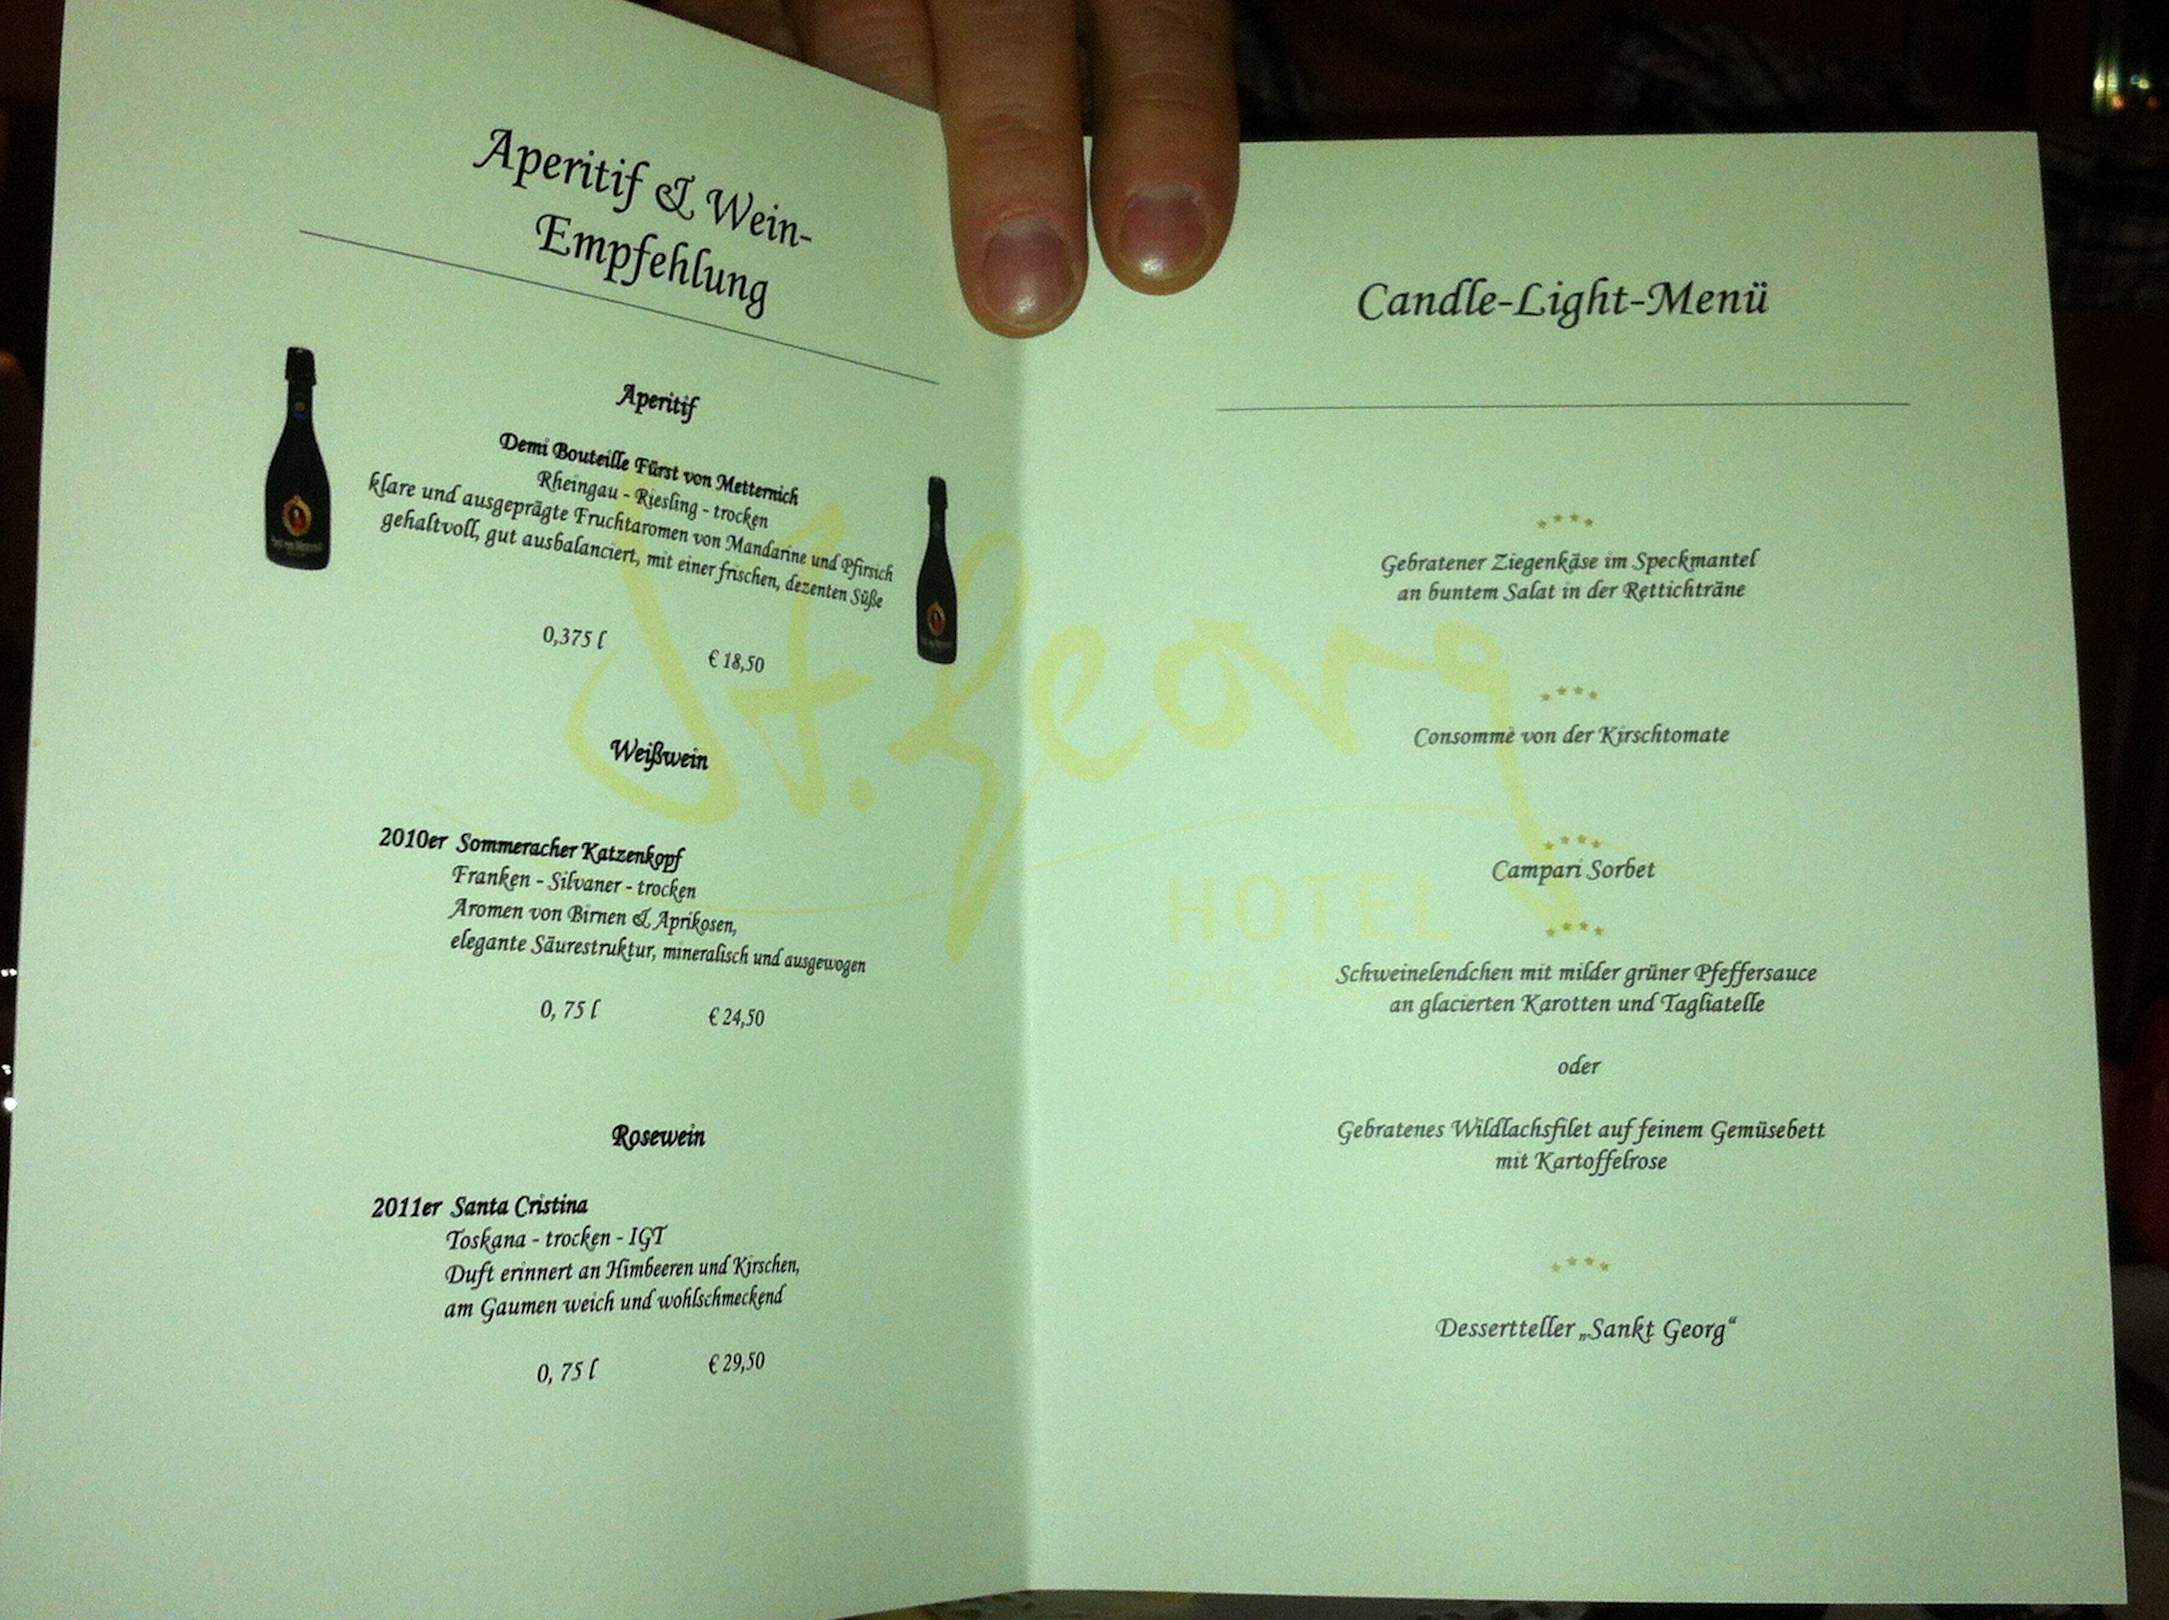 Aperitif & Wein-
Empfehlung
Aperitif
Demi Bouteille Fürst von Metternich
Rheingau - Riesling - trocken
klare und ausgeprägte Fruchtaromen von Mandarine und Pfirsich
gehaltvoll, gut ausbalanciert, mit einer frischen, dezenten Süße
0,375 l € 18,50
Weißwein
2010er Sommeracher Katzenkopf
Franken - Silvaner - trocken
Aromen von Birnen & Aprikosen,
elegante Säurestruktur, mineralisch und ausgewogen
0, 75 l € 24,50
Rosewein
2011er Santa Cristina
Toskana - trocken - IGT
Duft erinnert an Himbeeren und Kirschen,
am Gaumen weich und wohlschmeckend
0, 75 l € 29,50
St. Georg
HOTEL
Candle-Light-Menü
Gebratener Ziegenkäse im Speckmantel
an buntem Salat in der Rettichträne
Consommè von der Kirschtomate
Campari Sorbet
Schweinelendchen mit milder grüner Pfeffersauce
an glacierten Karotten und Tagliatelle
oder
Gebratenes Wildlachsfilet auf feinem Gemüsebett
mit Kartoffelrose
Dessertteller „Sankt Georg“